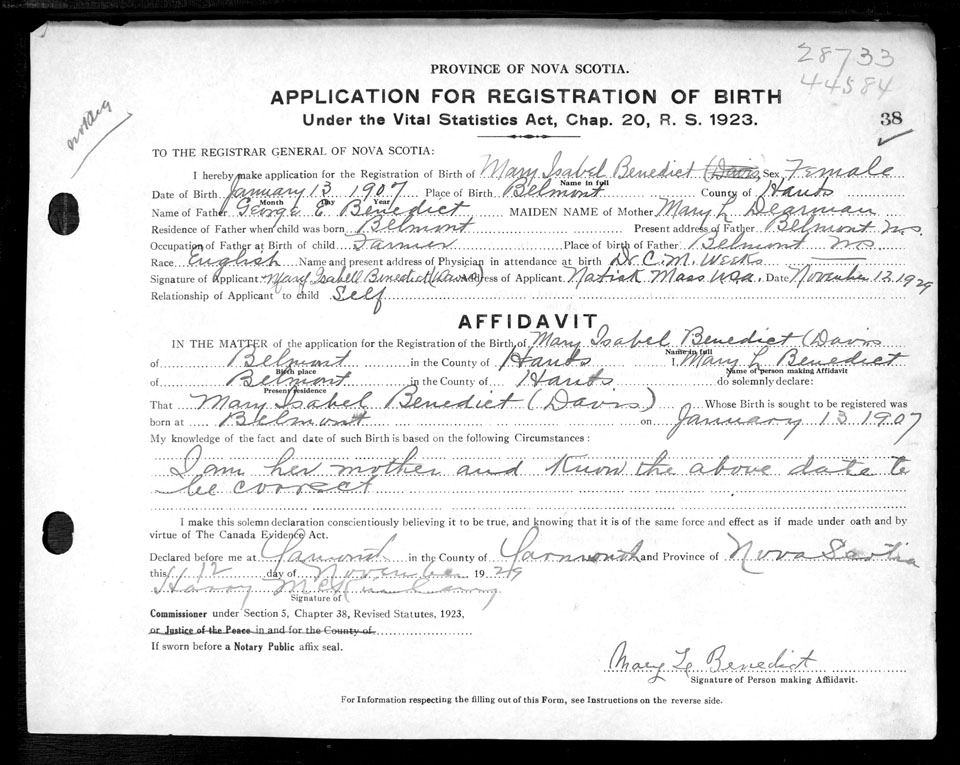 28733
44584
PROVINCE OF NOVA SCOTIA.
APPLICATION FOR REGISTRATION OF BIRTH
Under the Vital Statistics Act, Chap. 20, R. S. 1923.
38
TO THE REGISTRAR GENERAL OF NOVA SCOTIA:
I hereby make application for the Registration of Birth of Mary Isabel Benedict (Davis) Sex Female
Name in full
Date of Birth January 13 1907 Place of Birth Belmont County of Hants
Month Day Year
Name of Father George E. Benedict MAIDEN NAME of Mother Mary L Dearman
Residence of Father when child was born Belmont Present address of Father Belmont N.S.
Occupation of Father at Birth of child Farmer Place of birth of Father Belmont N.S.
Race English Name and present address of Physician in attendance at birth Dr. C. M. Weeks
Signature of Applicant Mary Isabell Benedict (Davis) Address of Applicant Natick Mass USA. Date November 12 1929
Relationship of Applicant to child Self
AFFIDAVIT
IN THE MATTER of the application for the Registration of the Birth of Mary Isabel Benedict (Davis
Name in full
of Belmont in the County of Hants I, Mary L Benedict
Birth place Name of person making Affidavit
of Belmont in the County of Hants do solemnly declare:
Present residence
That Mary Isabel Benedict (Davis) Whose Birth is sought to be registered was
born at Belmont on January 13 1907
My knowledge of the fact and date of such Birth is based on the following Circumstances:
I am her mother and know the above date to
be correct
I make this solemn declaration conscientiously believing it to be true, and knowing that it is of the same force and effect as if made under oath and by
virtue of The Canada Evidence Act.
Declared before me at Yarmouth in the County of Yarmouth and Province of Nova Scotia
this 12 day of November 1929
Harry
Signature of
Commissioner under Section 5, Chapter 38, Revised Statutes, 1923,
or Justice of the Peace in and for the County of
If sworn before a Notary Public affix seal.
Mary L Benedict
Signature of Person making Affidavit.
For Information respecting the filling out of this Form, see Instructions on the reverse side.